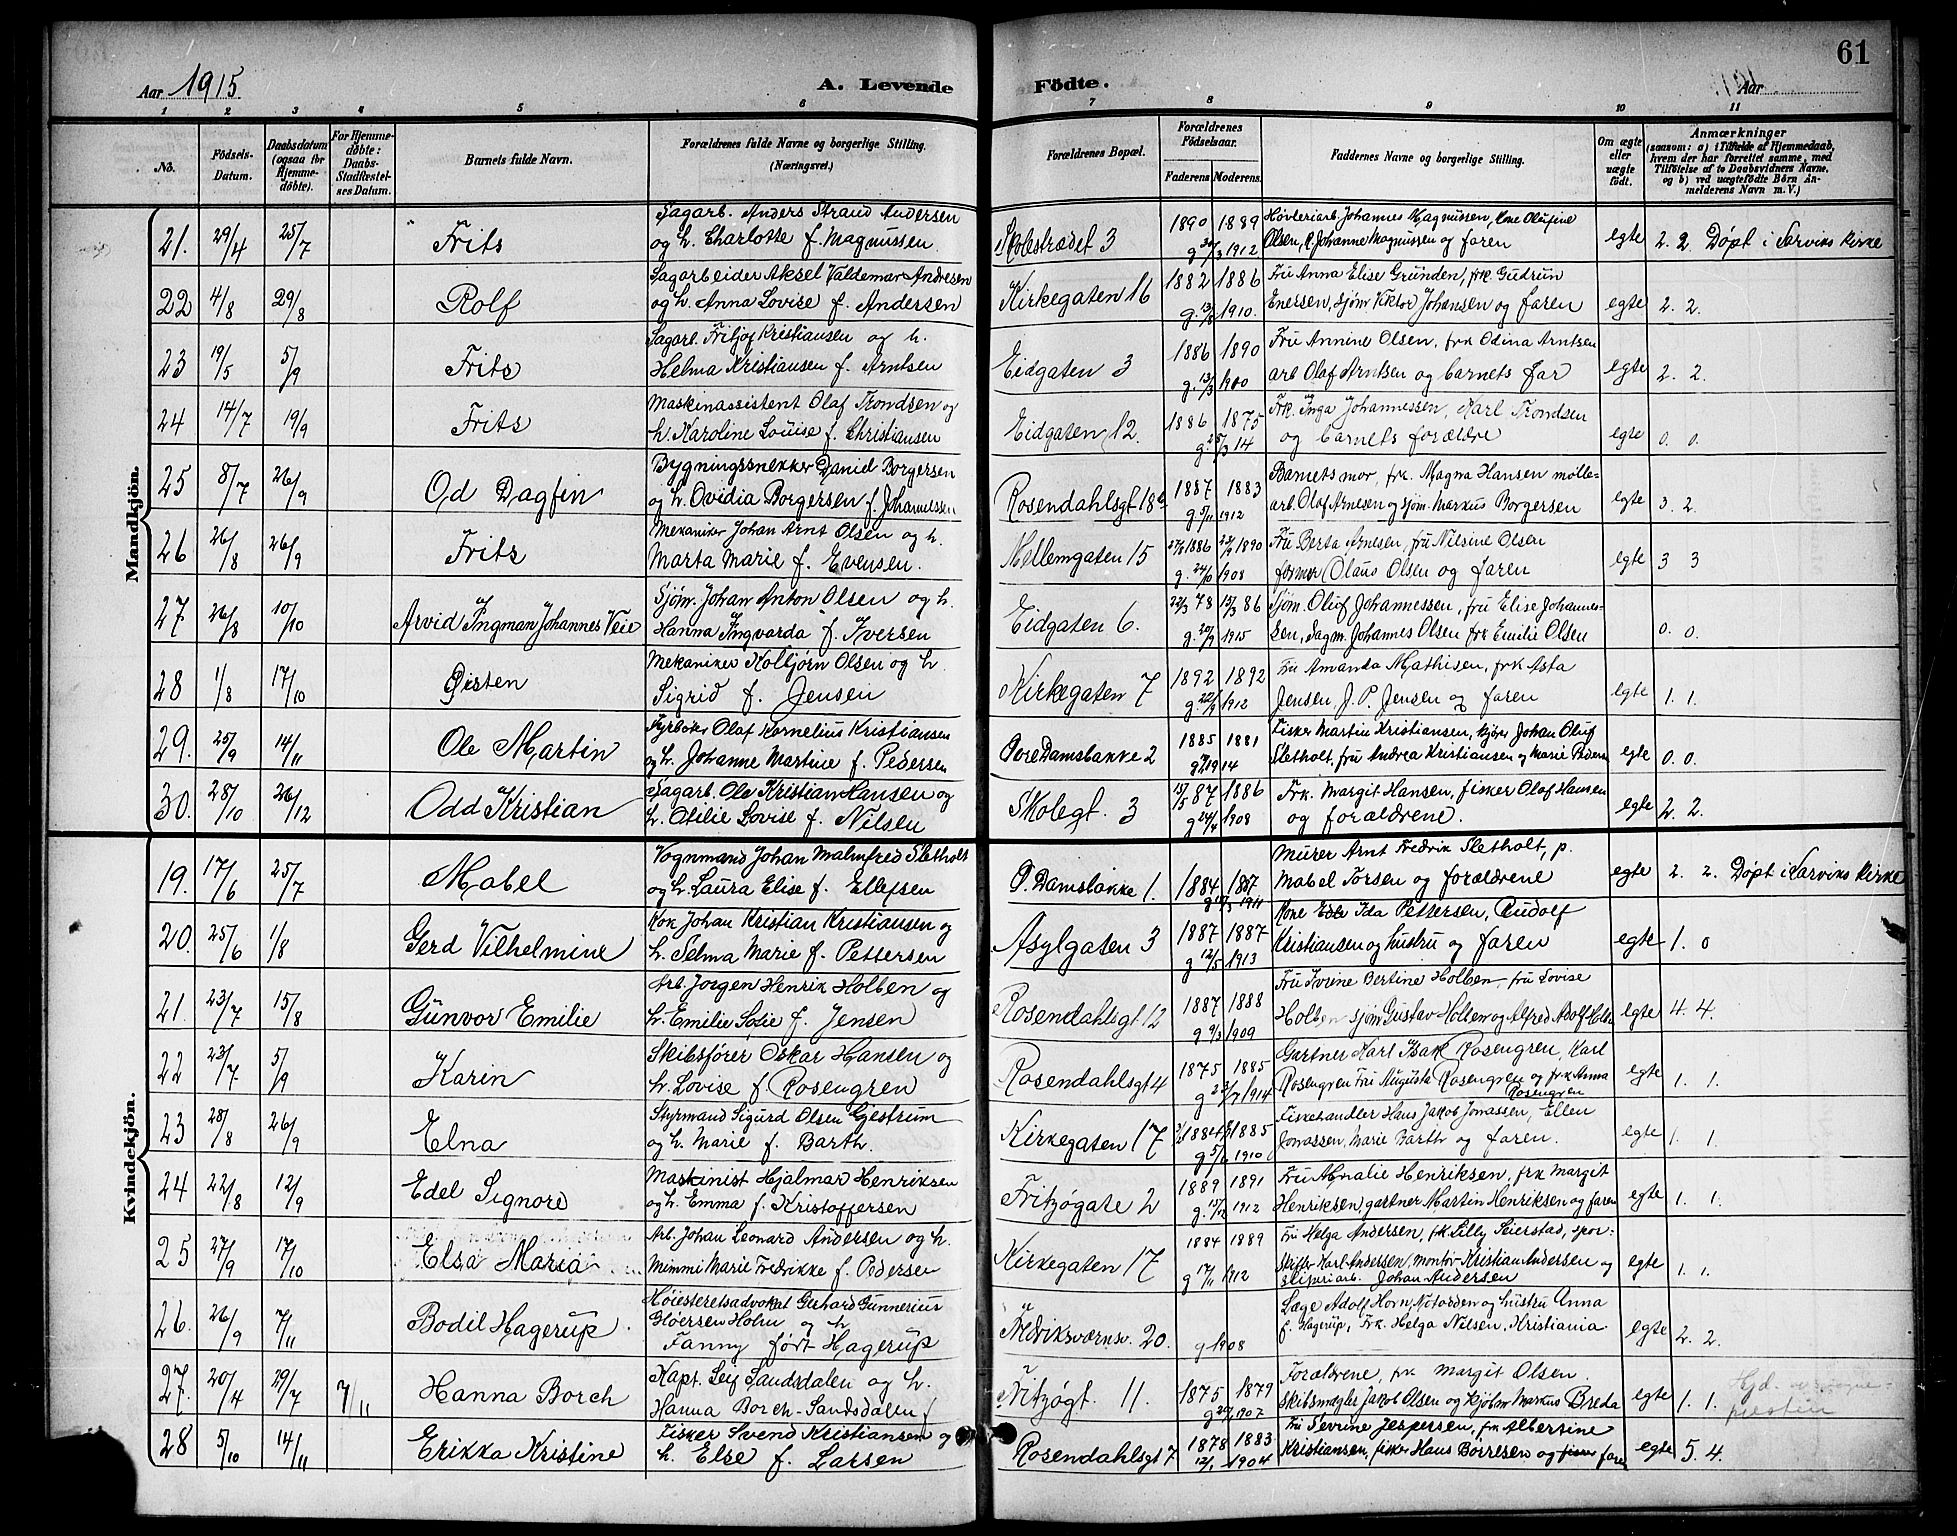 61
Aar 1915
A. Levende Födte.
Aar
1 2 3 4 5 6 7 8 9 10 11
No.
Födsels-Datum.
Daabsdatum (ogsaa for Hjemmedöbte).
For Hjemmedöbte: Daabs-Stadfæstelses Datum.
Barnets fulde Navn.
Forældrenes fulde Navne og borgerlige Stilling. (Næringsvei.)
Forældrenes Bopæl.
Forældrenes Födselsaar.
Faderens Moderens.
Faddernes Navne og borgerlige Stilling.
Om ægte eller uægte født.
Anmærkninger
(saasom: a) i Tilfælde af Hjemmedaab, hvem der har forrettet samme, med Tilföielse af to Daabsvidners Navne, og b) ved uægtefödte Börn Anmelderens Navn m. V.)
Mandkjön.
21. 29/4 25/7 Frits Sagarb. Anders Strand Andersen og h. Charlotte f. Magnussen. Skolestrædet 3 1890 1889 g. 1912 Høvleriarb. Johannes Magnussen, Kone Olufine Olsen, Johanne Magnussen og faren egte 2. 2. Døpt i Larviks kirke
22 4/8 29/8 Rolf Sagarbeider Aksel Valdemar Andresen og h. Anna Lovise f. Andersen Kirkegaten 16 1882 1886 g. 13/8 1910. Fru Anna Elise Grunden, frk. Gudrun Enersen, sjøm. Viktor Johansen og faren egte 2. 2.
23 19/5 5/9 Frits Sagarb. Fritjof Kristiansen og h. Helma Kristiansen f. Arntsen Eidgaten 3 1886 1890 g. 13/3 1910 Fru Annine Olsen, frk Odina Arntsen arb Olaf Arntsen og barnets far egte 2. 2.
24 14/7 19/9 Frits Maskinassistent Olaf Trondsen og h. Karoline Louise f. Christiansen Eidgaten 12. 1886 1875 g. 14 Frk. Inga Johannessen, Karl Trondsen og barnets forældre egte 0. 0.
25 8/7 26/9 Od Dagfin Bygningssnekker Daniel Borgersen og h. Ovidia Borgersen f. Johannessen Rosendahlsgt 18 1887 1883 g. 5/11 1912 Barnets mor, frk. Magna Hansen møllearb. Olaf Arnesen og sjøm. Markus Borgersen egte 3. 2.
26 26/8 26/9 Frits Mekaniker Johan Arnt Olsen og h. Marta Marie f. Evensen. Mellemgaten 15 1886 1890 g. 24/10 1908 Fru Berta Arnesen, fru Nilsine Olsen former Olaus Olsen og faren egte 3 3
27 26/8 10/10 Arvid Ingman Johannes Veie Sjøm. Johan Anton Olsen og h. Hanna Ingvarda f. Iversen Eidgaten 6. 22/3 78 15/3 86 g. 20/2 1915 Sjøm. Oluf Johannessen, fru Elise Johannessen, Sagm. Johannes Olsen frk Emilie Olsen 0. 0.
28 1/8 17/10 Øisten Mekaniker Kolbjørn Olsen og h. Sigrid f. Jensen Kirkegaten 7 1892 1892 g. 22/9 1912 Fru Amanda Mathisen, frk Asta Jensen, J. P. Jensen og faren egte 1. 1.
29. 25/9 14/11 Ole Martin Fyrbøter Olaf Kornelius Kristiansen og h. Johanne Martine f. Pedersen Øvre Damsbakke 2 1885 1881 g. 1914 Fisker Martin Kristiansen, kjører Johan Oluf Sletholt, fru Andrea Kristiansen og Marie Pedersen egte 0. 0.
30. 28/10 26/12 Odd Kristian Sagarb. Ole Kristian Hansen og h. Otilie Lovise f. Nilsen Skolegt. 3 15/5 87 1886 g 24/4 1908 Frk. Margit Hansen, fisker Olaf Hansen og forældrene. egte 2. 2.
Kvindekjön.
19. 17/6 25/7 Mabel Vognmand Johan Malmfred Sletholt og h. Laura Elise f. Ellefsen Ø. Damsbakke 1. 1884 1887 g 1911 Murer Arnt Fredrik Sletholt, p. Mabel Torsen og forældrene egte 2. 2. Døpt i Larviks kirke
20. 25/6 1/8 Gerd Vilhelmine Kok Johan Kristian Kristiansen og h. Selma Marie f. Pettersen Asylgaten 3 1887 1887 g 12/5 1913 Kone Ida Pettersen, Rudolf Kristiansen og hustru og faren egte 1. 0
21. 23/7 15/8 Gunvor Emilie Arb. Jørgen Henrik Holben og h. Emilie Sofie f. Jensen Rosendahlsgt 12 1887 1888 g 9/3 1909 Fru Karine Bertine Holben, fru Lovise Holben sjøm Gustav Holben og Alfred Adolf Holben egte 4. 4.
22 23/7 5/9 Karin Skibsfører Oskar Hansen og h. Lovise f. Rosengren Rosendahlsgt 4 1875 1885 g 23/7 1914 Gartner Karl Isak Rosengren, Karl Rosengren Fru Augusta Rosengren og frk Anna Rosengren egte 1. 1.
23 28/8 26/9 Elna Styrmand Sigurd Olsen Gjestrum og h. Marie f. Barth. Kirkegaten 17 1884 1885 g 5/6 1910 Fiskehandler Hans Jakob Jonassen, Ellen Jonassen, Marie Barth og faren. egte 1. 1.
24 22/8 12/9 Edel Signore Maskinist Hjalmar Henriksen og h. Emma f. Kristoffersen Fritzøgate 2 1889 1891 g. 15/12 1912 Fru Amalie Henriksen, frk Margit Henriksen, gartner Martin Henriksen og faren egte 1. 1.
25 27/9 17/10 Elsa Maria Arb. Johan Leonard Andersen og h. Mimmi Marie Fredrikke f. Pedersen Kirkegaten 17 1884 1889 g 17/11 1912 Fru Helga Andersen, frk Lilly Seierstad, sporskifter Karl Andersen, montør Kristian Andersen og sliperiarb. Johan Andersen egte 1. 1.
26. 26/9 7/11 Bodil Hagerup. Høiesteretsadvokat Gerhard Gunnerius Gløersen Hohn og h Fanny født Hagerup Fredriksværnsv. 20. g 1908 Læge Adolf Horn, Notodden og hustru Anna f. Hagerup, Frk. Helga Nilsen, Kristiania. egte 2. 2.
27. 20/4 29/7 7/11 Hanna Borch Kapt. Leif Sandsdalen og h. Hanna Borch-Sandsdalen f Fritzøgt. 11. 1875 1879 g 1907 Forældrene, frk Margit Olsen. Skibsmægler Jakob Olsen og kjøbm Markus Breda egte 1. 1.
28 5/10 14/11 Erikka Kristine Fisker Svend Kristiansen og h. Else f. Larsen Rosendahlsgt 7 1878 1883 12/1 1904 Fru Severine Jespersen, frk Albertine Kristiansen, fisker Hans Børresen og faren egte 5. 4.